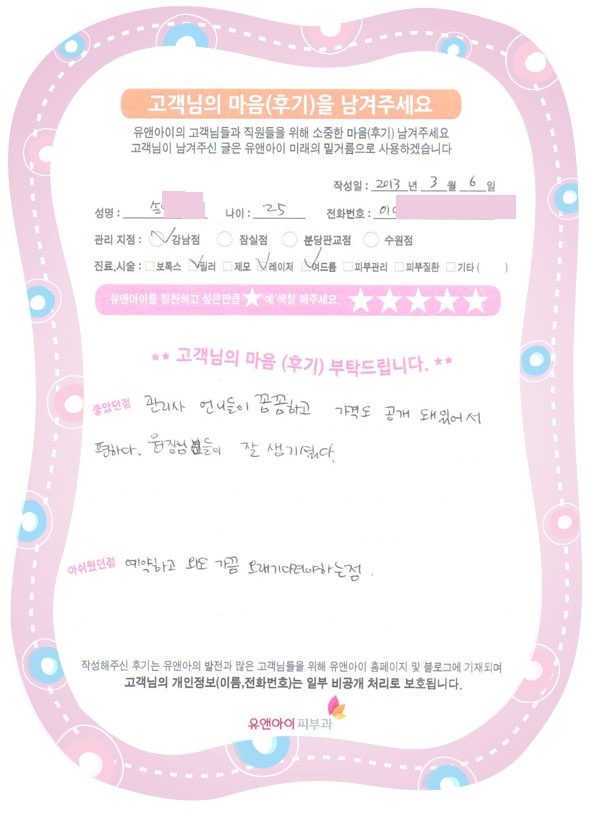 고객님의 마음(후기)을 남겨주세요
유앤아이의 고객님들과 직원들을 위해 소중한 마음(후기) 남겨주세요
고객님이 남겨주신 글은 유앤아이 미래의 밑거름으로 사용하겠습니다
작성일 : 2013 년 3 월 6 일
성명 : 나이 : 25 전화번호 :
관리 지점 : 강남점 잠실점 분당판교점 수원점
진료,시술 : 보톡스 필러 제모 레이저 여드름 피부관리 피부질환 기타 ( )
유앤아이를 칭찬하고 싶은만큼 ★에 색칠 해주세요. ★★★★★
** 고객님의 마음 (후기) 부탁드립니다. **
좋았던점 관리사 언니들이 꼼꼼하고 가격도 공개 돼있어서
편하다. 원장님들이 잘 생기셨다.
아쉬웠던점 예약하고 와도 가끔 오래기다려야하는점.
작성해주신 후기는 유앤아의 발전과 많은 고객님들을 위해 유앤아이 홈페이지 및 블로그에 기재되며
고객님의 개인정보(이름,전화번호)는 일부 비공개 처리로 보호됩니다.
유앤아이피부과